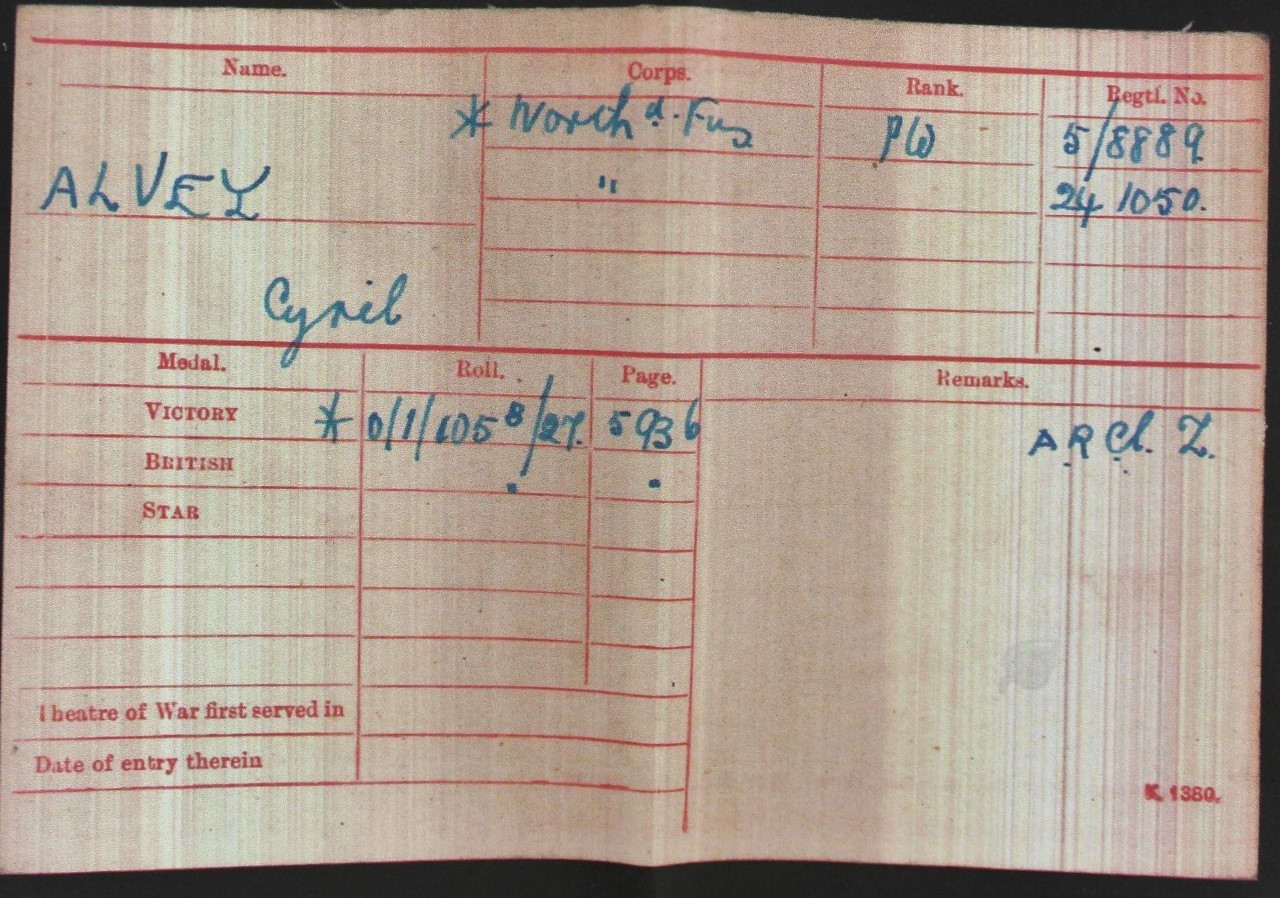 Name. Corps. Rank. Regtl. No.
* North d. Fus Pte 5/8889
ALVEY " 241050.
Cyril
Medal. Roll. Page. Remarks.
VICTORY * O/1/105 B/27. 5936 A.R Cl. Z.
BRITISH " "
STAR
Theatre of War first served in
Date of entry therein
K. 1380.